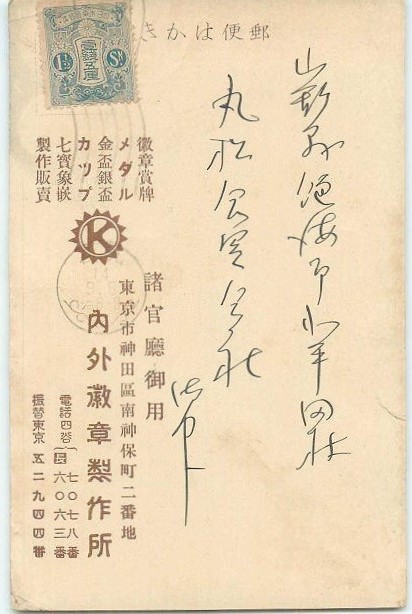 郵便はかき
壹錢五厘
1½ Sn
山形縣飽海郡北平田村
丸松合資会社
御中
徽章賞牌
メダル
金盃銀盃
カップ
七寶象嵌
製作販賣
K
諸官廳御用
東京市神田區南神保町二番地
內外徽章製作所
電話四谷
七〇七八番
長六〇六三番
振替東京五二九四四番